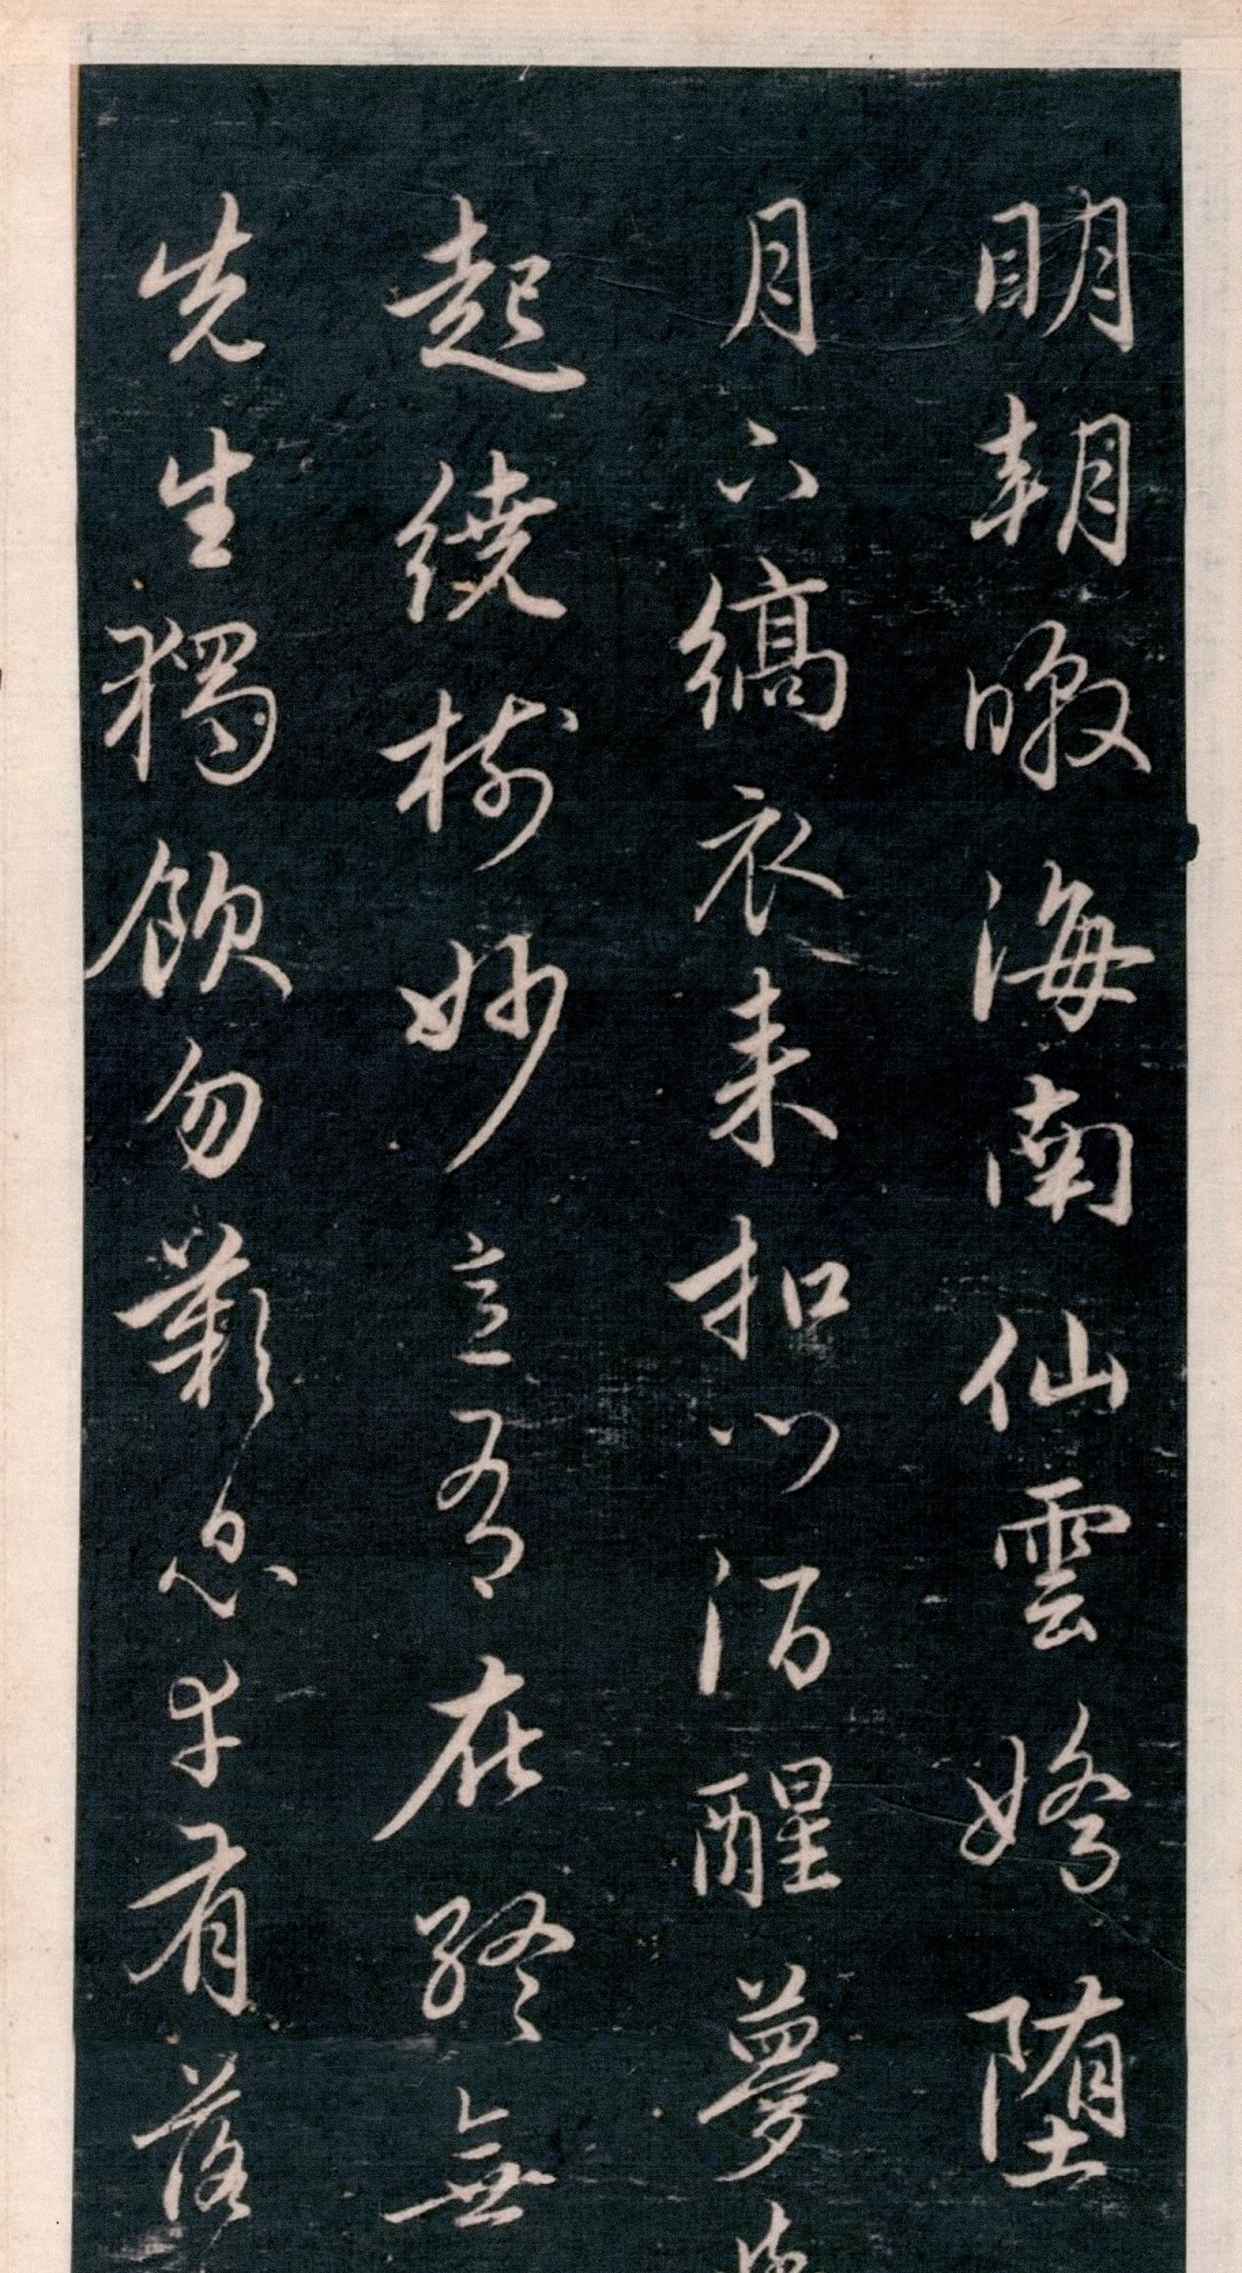 明朝暾海南仙雲嬌堕
月下縞衣来扣門酒醒夢
起繞樹妙意有在終無
先生獨飲勿歎息幸有落